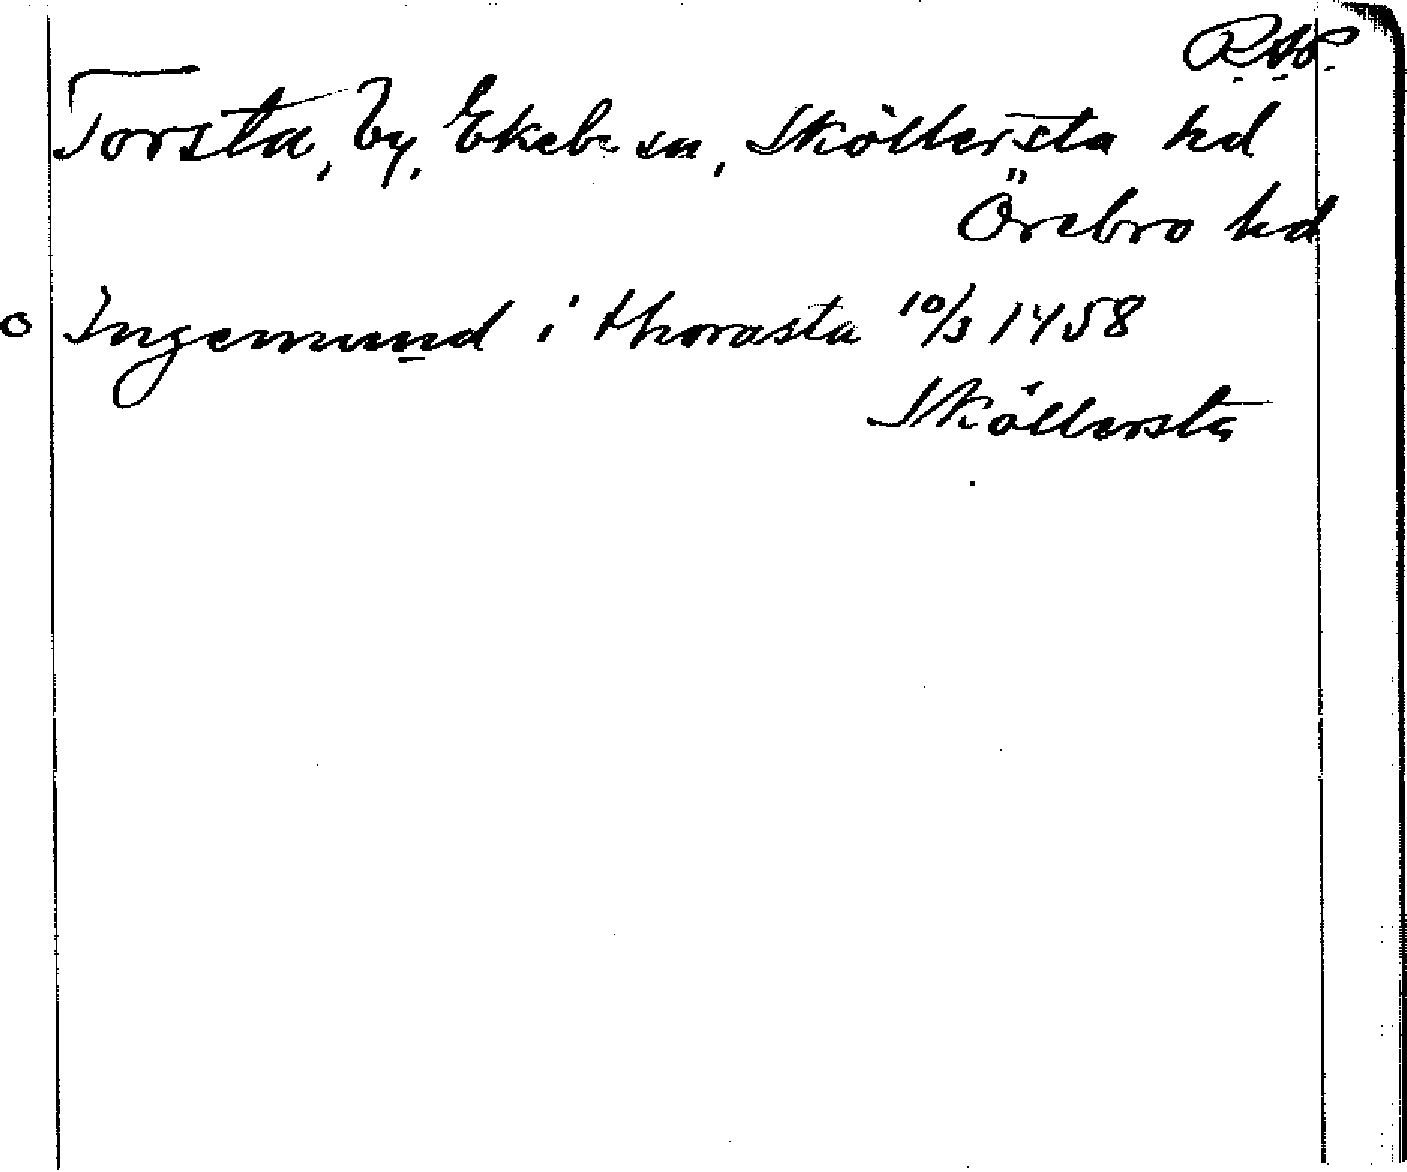 Torsta, by, Ekeb sn, Sköllersta hd
Örebro hd
o Ingemund i thorasta 10/3 1458
Sköllersta